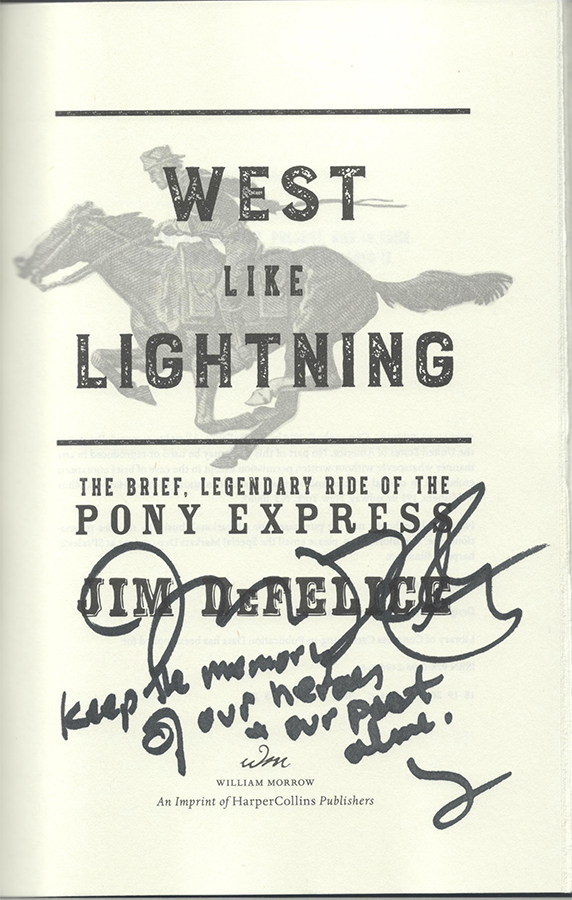 WEST
LIKE
LIGHTNING
THE BRIEF, LEGENDARY RIDE OF THE
PONY EXPRESS
JIM DeFELICE
keep the memory
of our heroes
& our past
alive.
wm
WILLIAM MORROW
An Imprint of HarperCollins Publishers